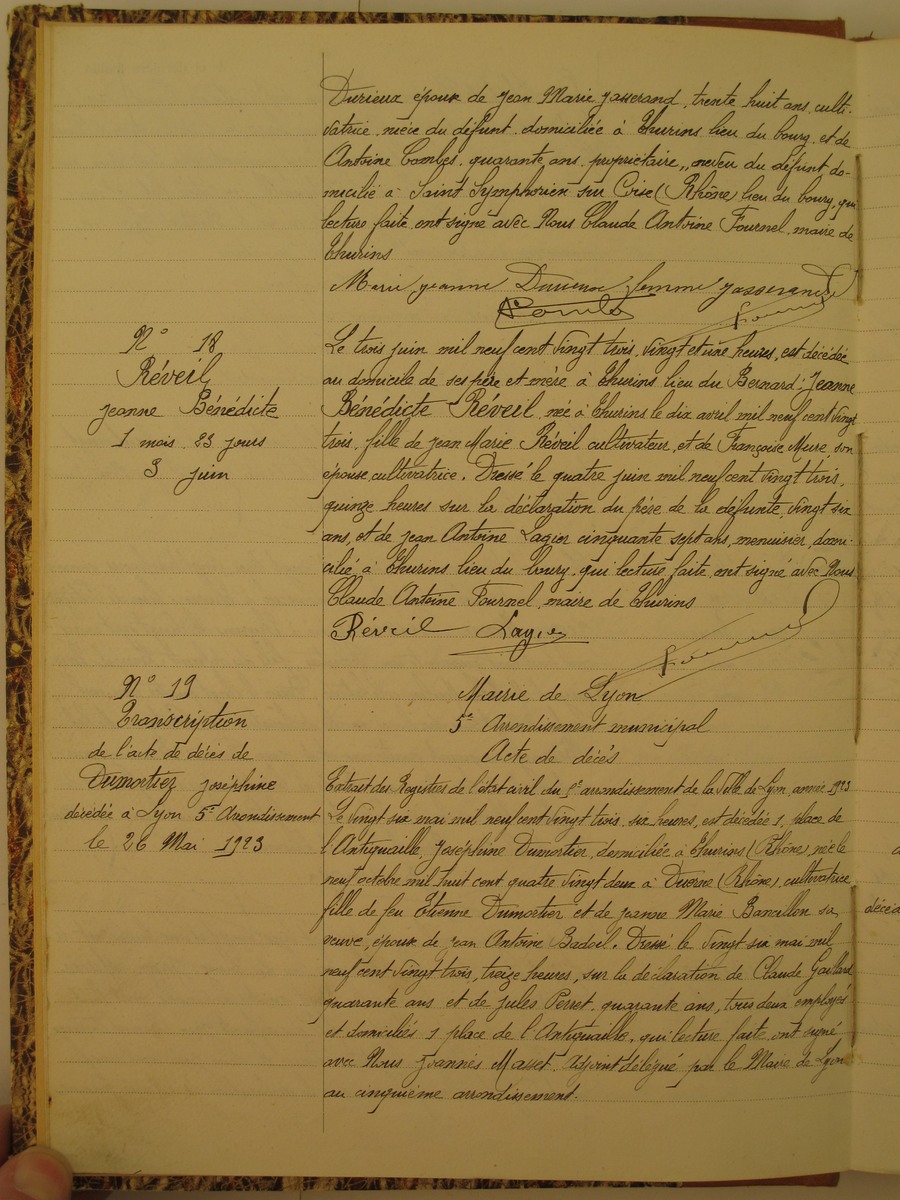 Durieux épouse de Jean Marie Jasserand, trente huit ans, culti-
vatrice, nièce du défunt, domiciliée à Thurins lieu du bourg, et de
Antoine Combes, quarante ans, propriétaire, neveu du défunt do-
micilié à Saint Symphorien sur Coise (Rhône) lieu du bourg, qui
lecture faite, ont signé avec Nous Claude Antoine Fournel, maire de
Thurins
Marie Jeanne Durieux femme Jasserand
Combe Fournel
N° 18
Réveil
Jeanne Bénédicte
1 mois 23 jours
3 juin
Le trois juin mil neuf cent vingt trois, vingt et une heures, est décédée
au domicile de ses père et mère à Thurins lieu du Bernard, Jeanne
Bénédicte Réveil, née à Thurins le dix avril mil neuf cent vingt
trois, fille de Jean Marie Réveil cultivateur, et de Françoise Mure, son
épouse cultivatrice. Dressé le quatre juin mil neuf cent vingt trois,
quinze heures sur la déclaration du père de la défunte, vingt six
ans, et de Jean Antoine Lagier cinquante sept ans, menuisier, domi-
cilié à Thurins lieu du bourg, qui lecture faite, ont signé avec Nous
Claude Antoine Fournel, maire de Thurins
Réveil Lagier Fournel
N° 19
Transcription
de l'acte de décès de
Dumortier Joséphine
décédée à Lyon 5e Arrondissement
le 26 Mai 1923
Mairie de Lyon
5e Arrondissement municipal
Acte de décès
Extrait des Registres de l'état civil du 5e arrondissement de la Ville de Lyon, année 1923
Le vingt six mai mil neuf cent vingt trois, six heures, est décédée 1, place de
l'Antiquaille, Joséphine Dumortier, domiciliée à Thurins (Rhône), née le
neuf octobre mil huit cent quatre vingt deux à Duerne (Rhône), cultivatrice
fille de feu Etienne Dumortier et de Jeanne Marie Bancillon sa
veuve, épouse de Jean Antoine Badoil. Dressé le vingt six mai mil
neuf cent vingt trois, treize heures, sur la déclaration de Claude Gaillard
quarante ans et de Jules Perret, quarante ans, tous deux employés
et domiciliés 1 place de l'Antiquaille, qui lecture faite ont signé
avec Nous Joannès Masset, Adjoint délégué par le Maire de Lyon
au cinquième arrondissement.